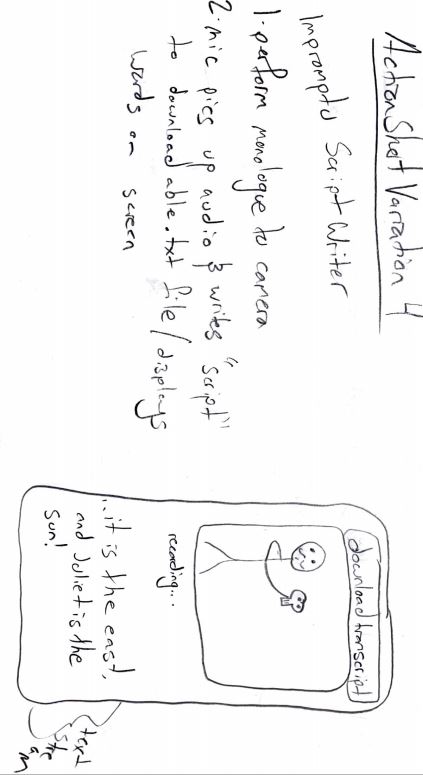 ActionShot Variation 4
Impromptu Script Writer
1. perform monologue to camera
2. mic pics up audio & writes "script"
to downloadable .txt file / displays
words on screen
download transcript
recording...
...it is the east,
and Juliet is the
Sun!
text
stream